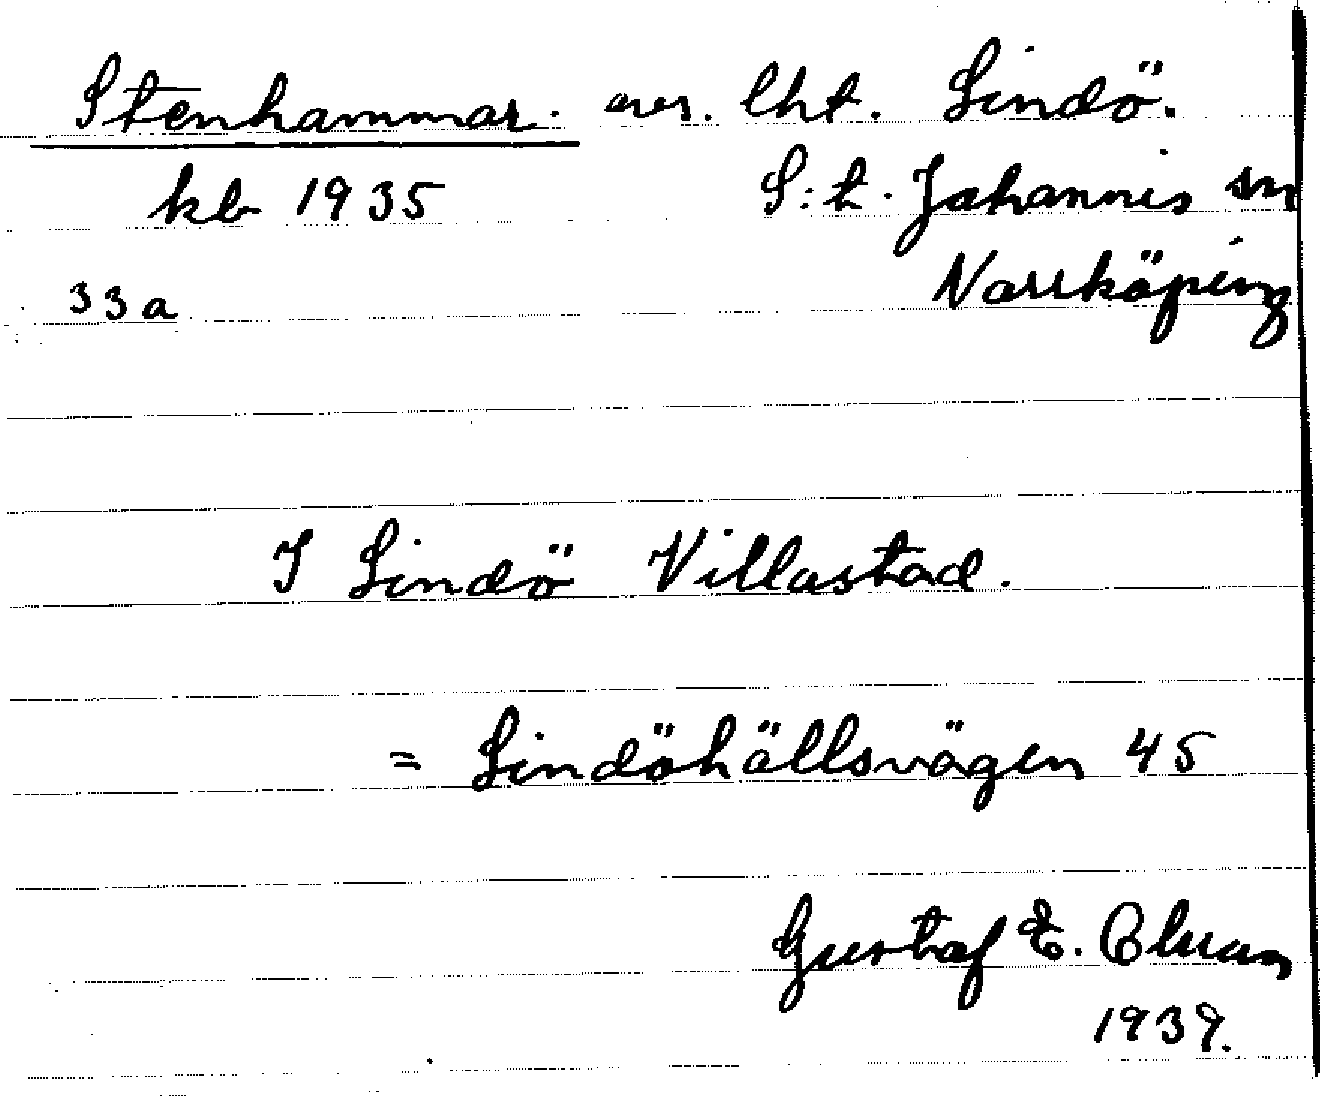 Stenhammar. avs. lht. Lindö.
kb 1935 S:t. Johannis sn
33a Norrköping
I Lindö Villastad.
= Lindöhällsvägen 45
Gustaf E.
1939.